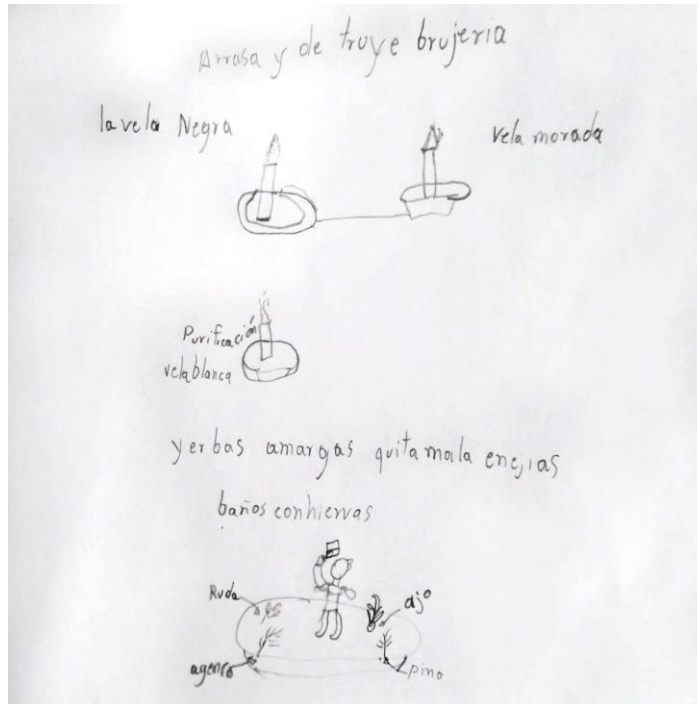 Arrasa y de truye brujeria
la vela Negra
vela morada
Purificación
vela blanca
yerbas amargas quita mala enejias
baños con hiervas
Ruda
ajo
agenco
pino